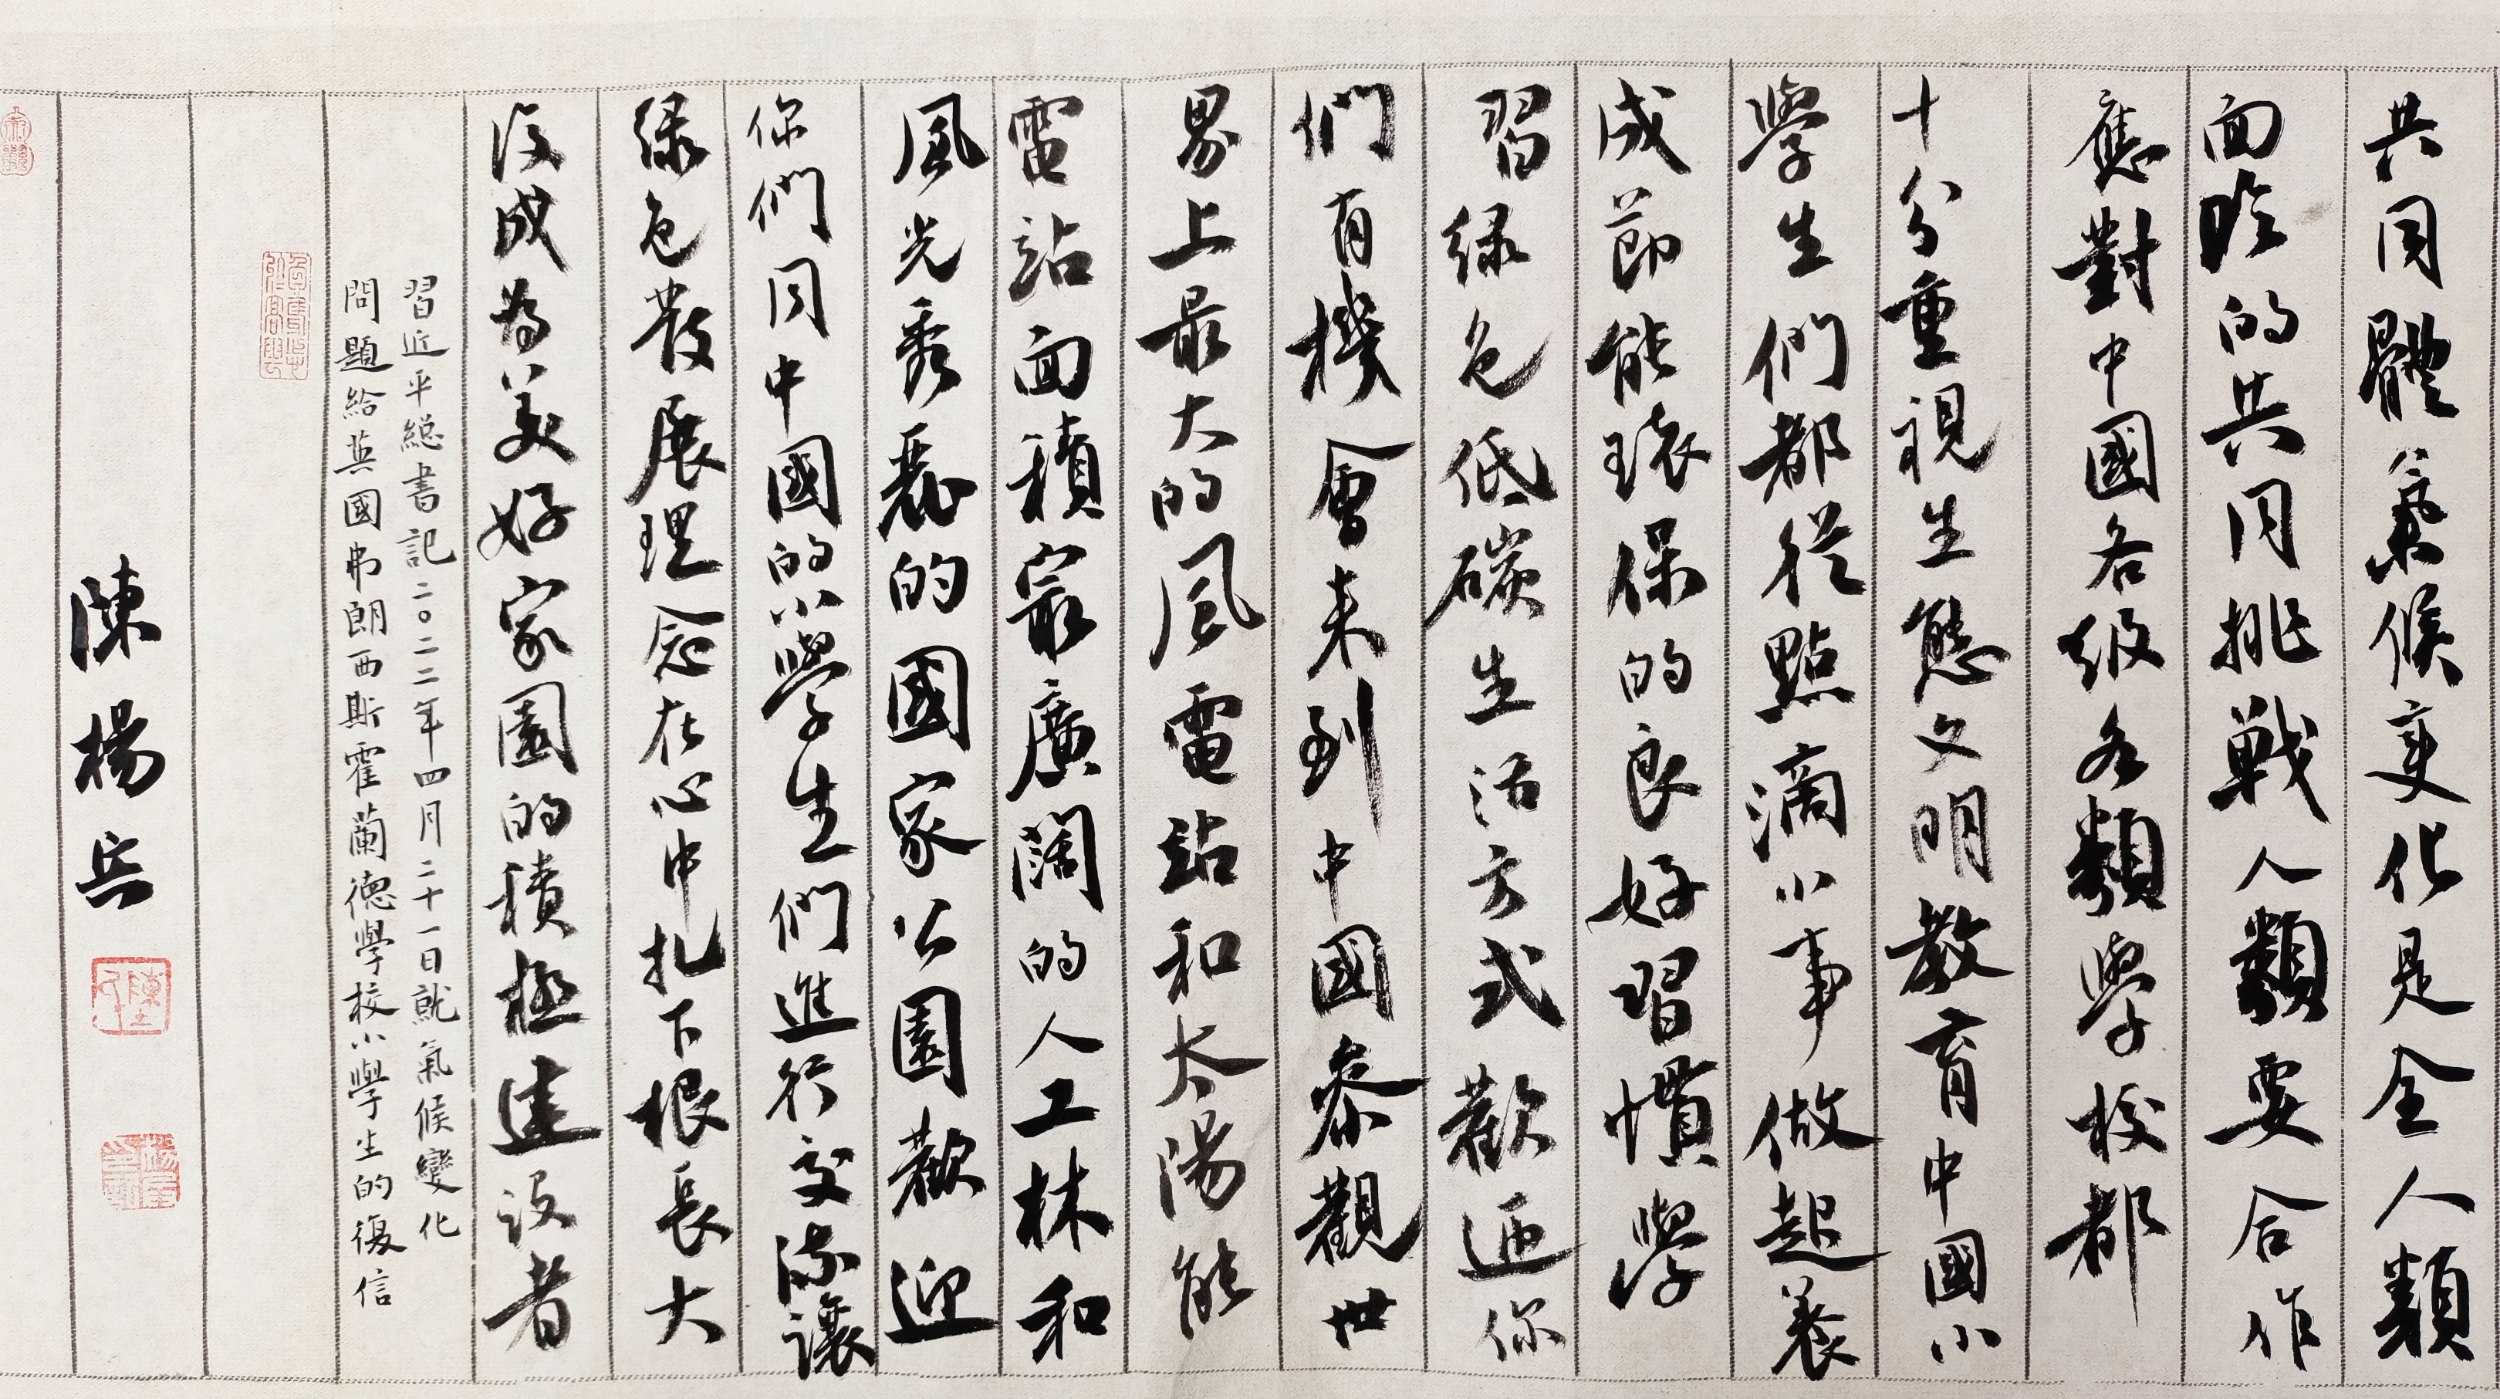 共同體氣候变化是全人類
面临的共同挑戰人類要合作
應對中國各级各類學校都
十分重視生態文明教育中國小
學生們都從點滴小事做起養
成節能環保的良好習慣學
習绿色低碳生活方式歡迎你
們有機會来到中國參觀世
界上最大的風電站和太陽能
電站面積最廣闊的人工林和
風光秀麗的國家公園歡迎
你們同中國的小學生們進行交流讓
绿色發展理念在心中扎下根長大
後成為美好家園的積極建设者
習近平總書記二〇二二年四月二十一日就氣候變化
問題給英國弗朗西斯霍蘭德學校小學生的復信
陳楊兵